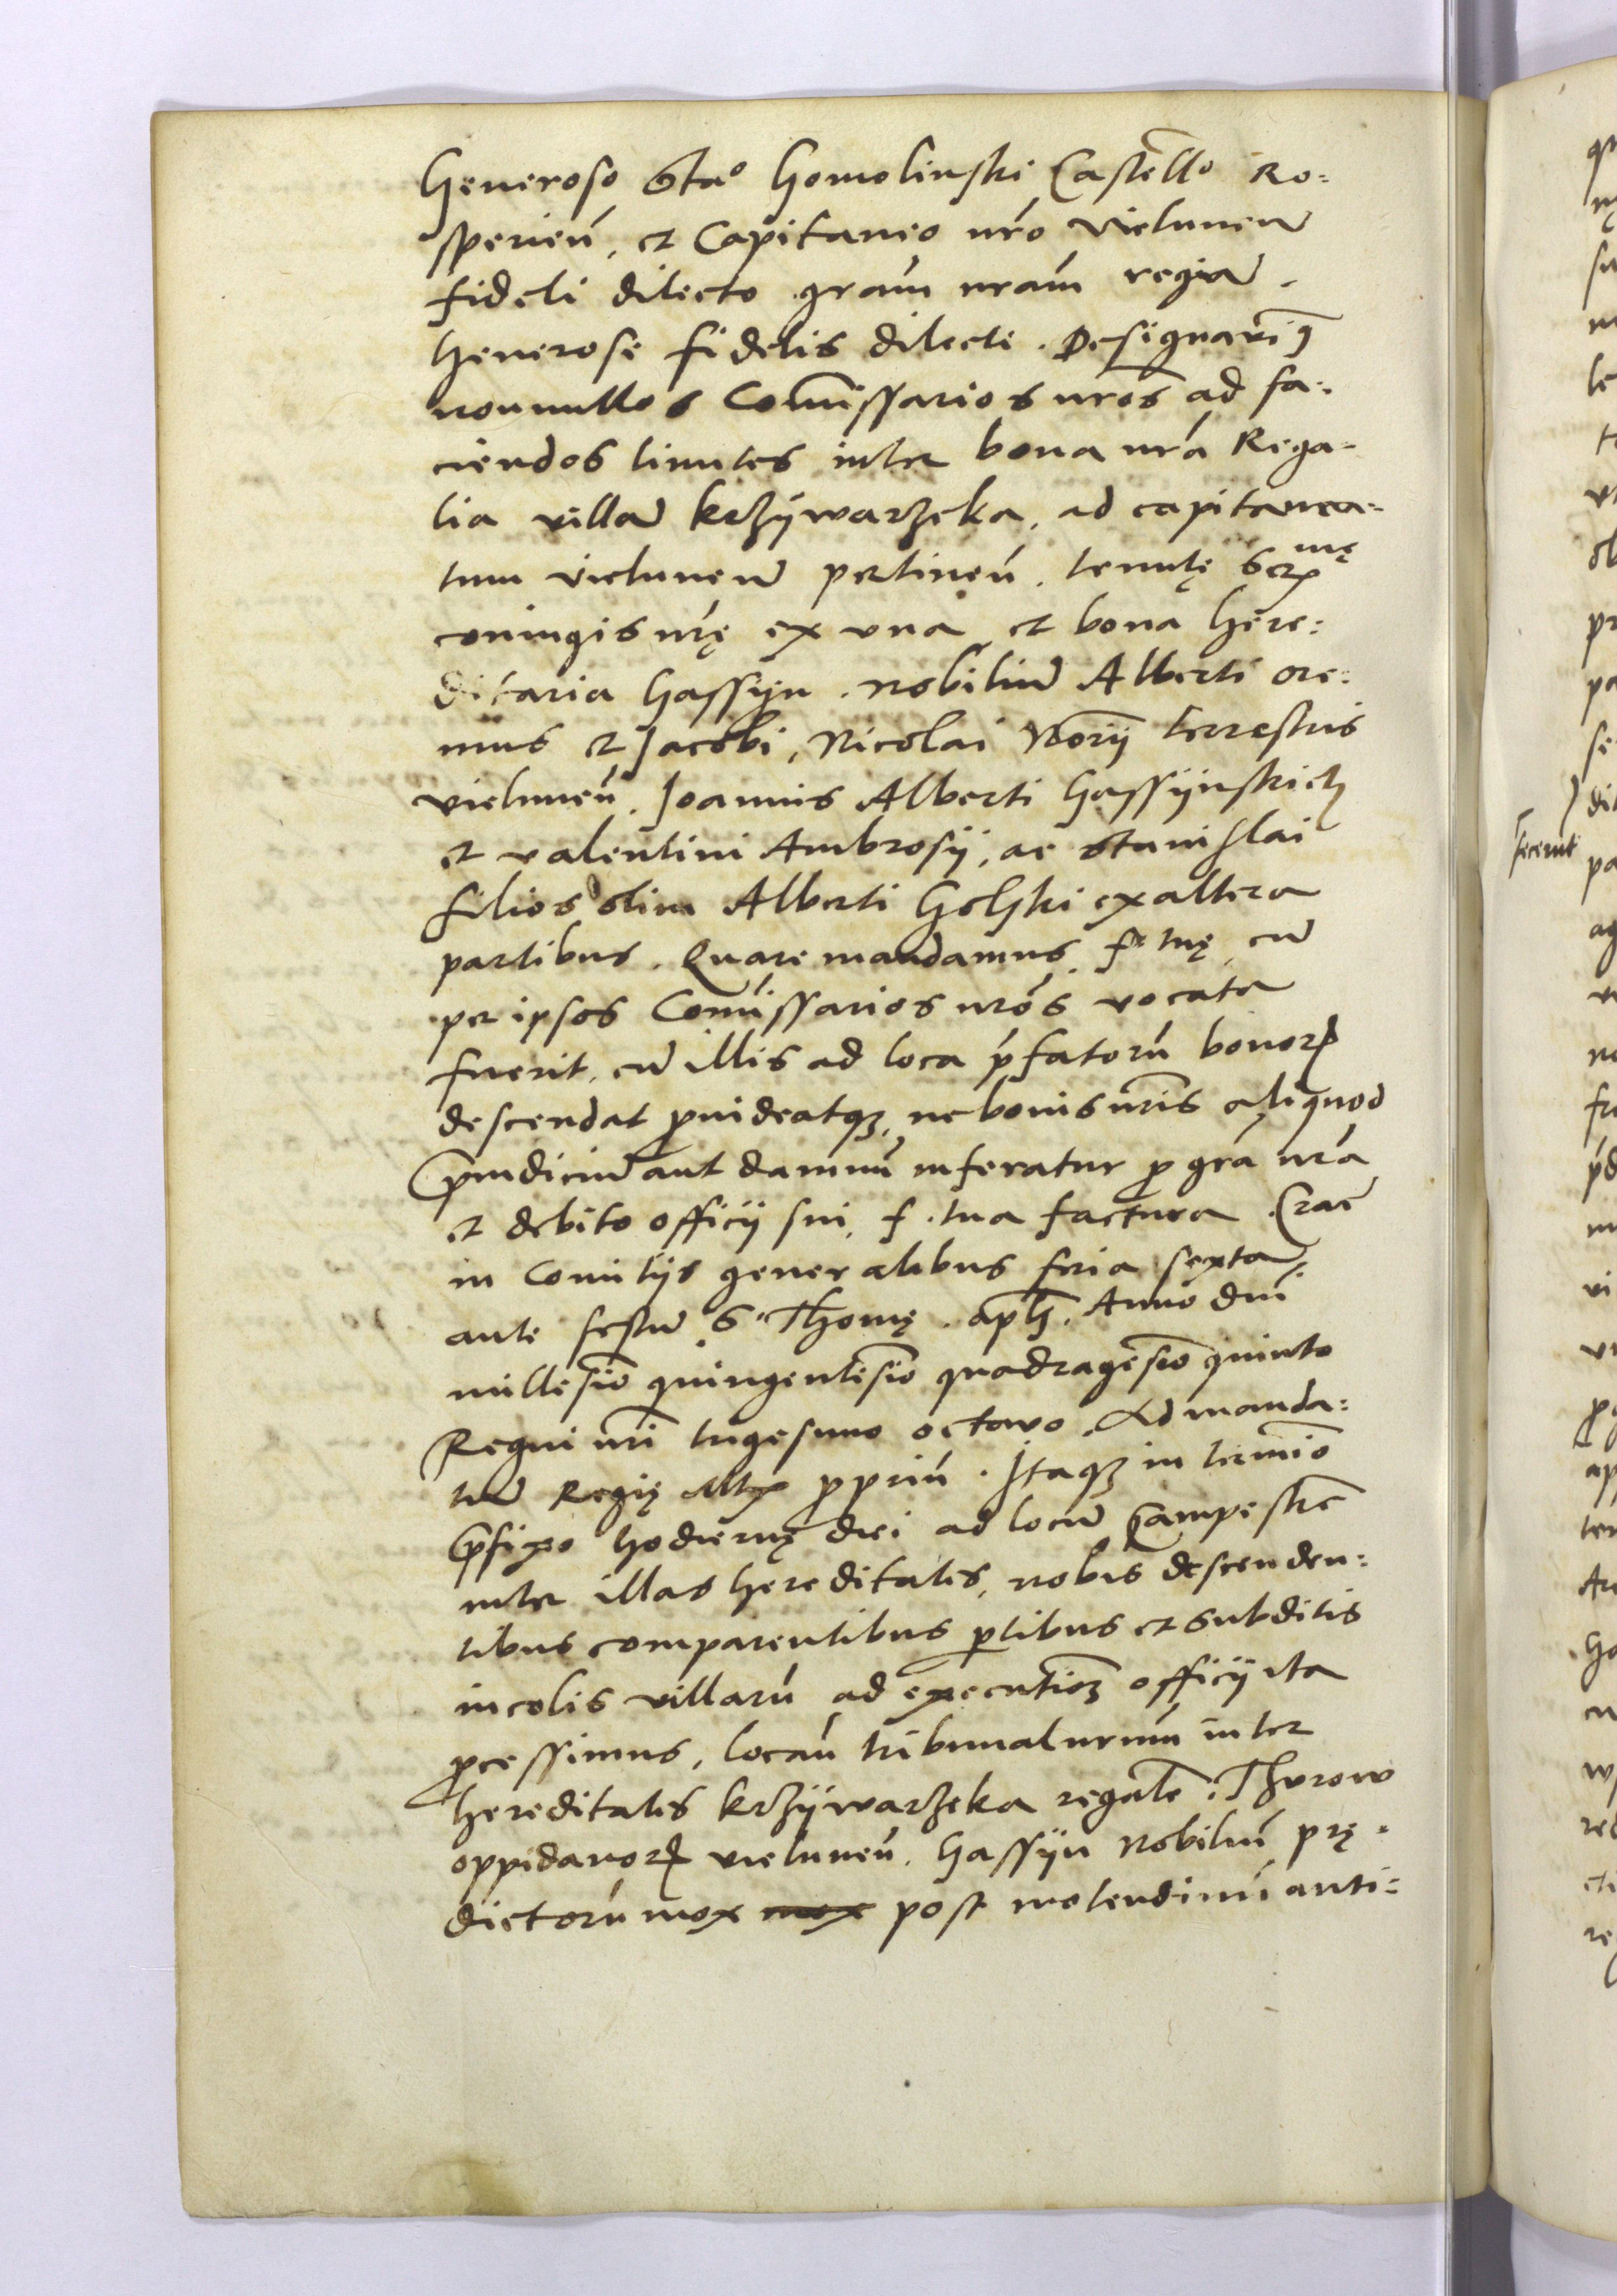 Generoso Sta° Gomolinski Castello Ro:
sperien̄, et Capitaneo nr̄o vielunen̄
fideli dilecto gram̄ nram̄ regiā.
Generose fidelis dilecte. Designavim9
nonnullos Com̄issarios nr̄os ad fa:
ciendos limites inter bona nrā Rega-
lia villā krzÿwarzeka, ad capitanea-
tum vielunen̄ pertinen̄. tenutę Ser mę
coniugis nr̄ę ex vna et bona here:
ditaria Gassÿn. nobiliū Alberti ore:
mus et Jacobi, Nicolai Norÿ terrestris
vielunen̄. Joannis Alberti Gassÿnskich
et valentini Ambrosÿ, ac Stanislai
filios olim Alberti Golski ex altera
partibus. Quare mandamus f. tuę cū
per ipsos Com̄issarios nrōs vocata
fuerit, cū illis ad loca p̄fatorū bonorꝝ
descendat p̄videatqꝫ, ne bonis nr̄is aliquod
p̄iudiciū aut damnū inferatur p grā nrā
et debito officÿ sui, f. tua factura. Crac̄
in Comitÿs generalibus feria sexta
ante festū S. Thomę. apl̄i. Anno dnī
millesīo quingentesīo quadragesīo quinto
Regni nr̄i trigesimo octavo. Ad manda:
tū Regię Mtx p̄priū. Itaqꝫ in termīo
p̄fixo hodiernę diei ad locū Campestrē
inter illas hereditates, nobis descenden:
tibus comparentibus ptibus et subditis
incolis villarū ad executionꝫ officÿ ita
p̄cessimus, locan̄ tribunal nr̄um inter
hereditates krzÿwarzeka regalē. Thurow
oppidanorꝝ vielunen̄. Gassÿn Nobiliū prę-
dictorū mox mox post molendinū anti:
fecerūt